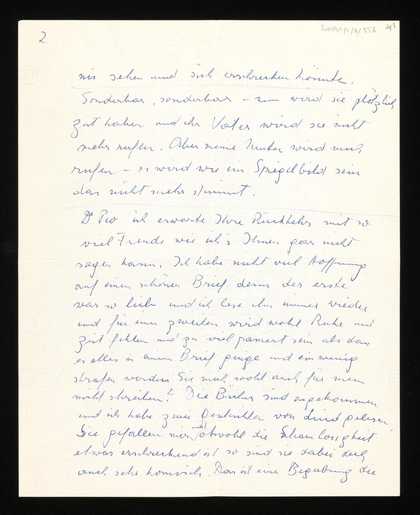 2
mir sehen und sich erschrecken könnte.
Sonderbar, sonderbar – nun wird sie plötzlich
Zeit haben und ihr Vater wird sie nicht
mehr rufen. Aber meine Mutter wird mich
rufen – es wird wie ein Spiegelbild sein
das nicht mehr stimmt.
Dr ich erwarte Ihre Rückkehr mit so
viel Freude wie ich's Ihnen gar nicht
sagen kann. Ich habe nicht viel Hoffnung
auf einen schönen Brief denn der erste
war so lieb und ich lese ihn immer wieder
und für einen zweiten wird wohl Ruhe und
Zeit fehlen und zu viel passiert sein als dass
es alles in einen Brief ginge und ein wenig
werden Sie mich wohl auch für mein
nicht schreiben! Die Bücher sind angekommen
und ich habe zwei Geschichten von gelesen,
Sie gefallen mir. Obwohl die Schamlosigkeit
etwas erschreckend ist so sind sie dabei doch
auch sehr komisch. Das ist eine Begabung die